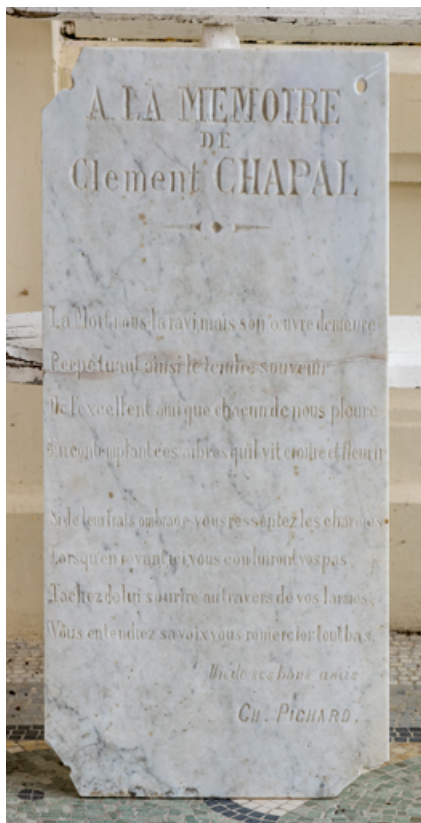 A LA MEMOIRE
DE
Clement CHAPAL
La Mort nous la ravi, mais son œuvre demeure
Perpétuant ainsi le tendre souvenir
De l'excellent ami que chacun de nous pleure
En contemplant ces arbres qu'il vit croitre et fleurir
Si de leur frais ombrage vous ressentez les charmes
Lorsqu'en revant ici vous conduiront vos pas,
Tachez de lui sourire au travers de vos larmes,
Vous entendrez sa voix vous remercier tout bas.
Un de ses bons amis
CH. PICHARD.